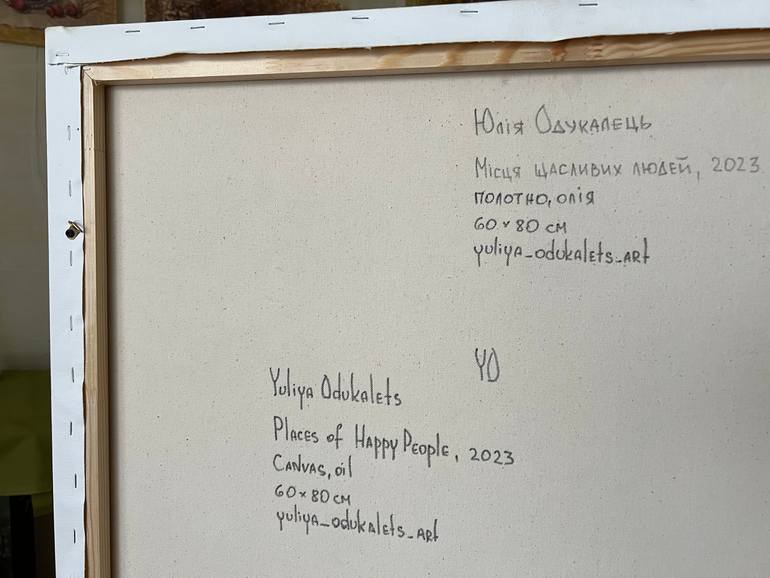 Юлія Одукалець
Місця щасливих людей, 2023
полотно, олія
60 × 80 см
yuliya_odukalets_art
YO
Yuliya Odukalets
Places of Happy People, 2023
Canvas, oil
60 × 80 см
yuliya_odukalets_art